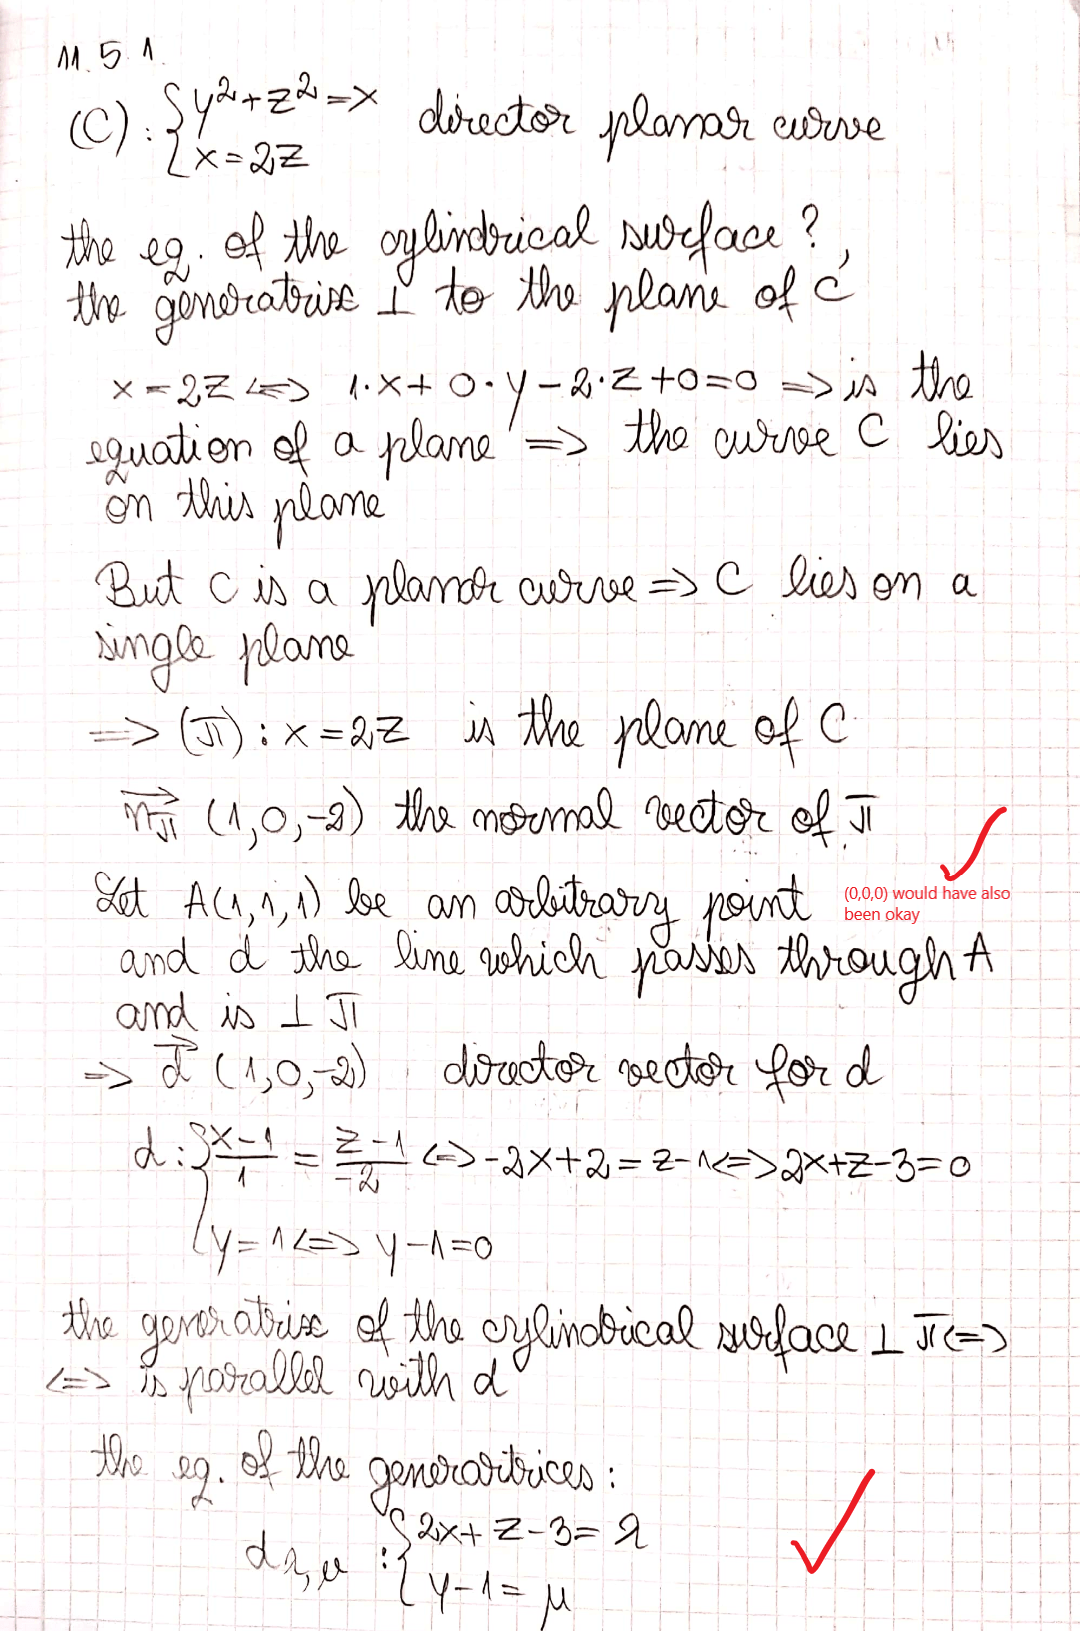 11.5.1.
(C): { y² + z² = x director planar curve
x = 2z
the eq. of the cylindrical surface?,
the generatrix ⊥ to the plane of C
x = 2z <=> 1·x + 0·y - 2·z + 0 = 0 => is the
equation of a plane => the curve C lies
on this plane
But C is a planar curve => C lies on a
single plane
=> (π): x = 2z is the plane of C
n⃗π (1,0,-2) the normal vector of π
Let A(1,1,1) be an arbitrary point
(0,0,0) would have also
been okay
and d the line which passes through A
and is ⊥ π
=> d⃗ (1,0,-2) director vector for d
d: { (x-1)/1 = (z-1)/-2 <=> -2x + 2 = z - 1 <=> 2x + z - 3 = 0
y = 1 <=> y - 1 = 0
the generatrix of the cylindrical surface ⊥ π <=>
<=> is parallel with d
the eq. of the generaritrices:
dλ,μ : { 2x + z - 3 = λ
y - 1 = μ